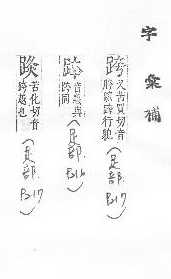 字彙補
跨 又苦買切音
胯䠸跨行貌
(足部 B17)
音義與
跨同
(足部 B16)
苦化切音
跨越也
(足部 B17)